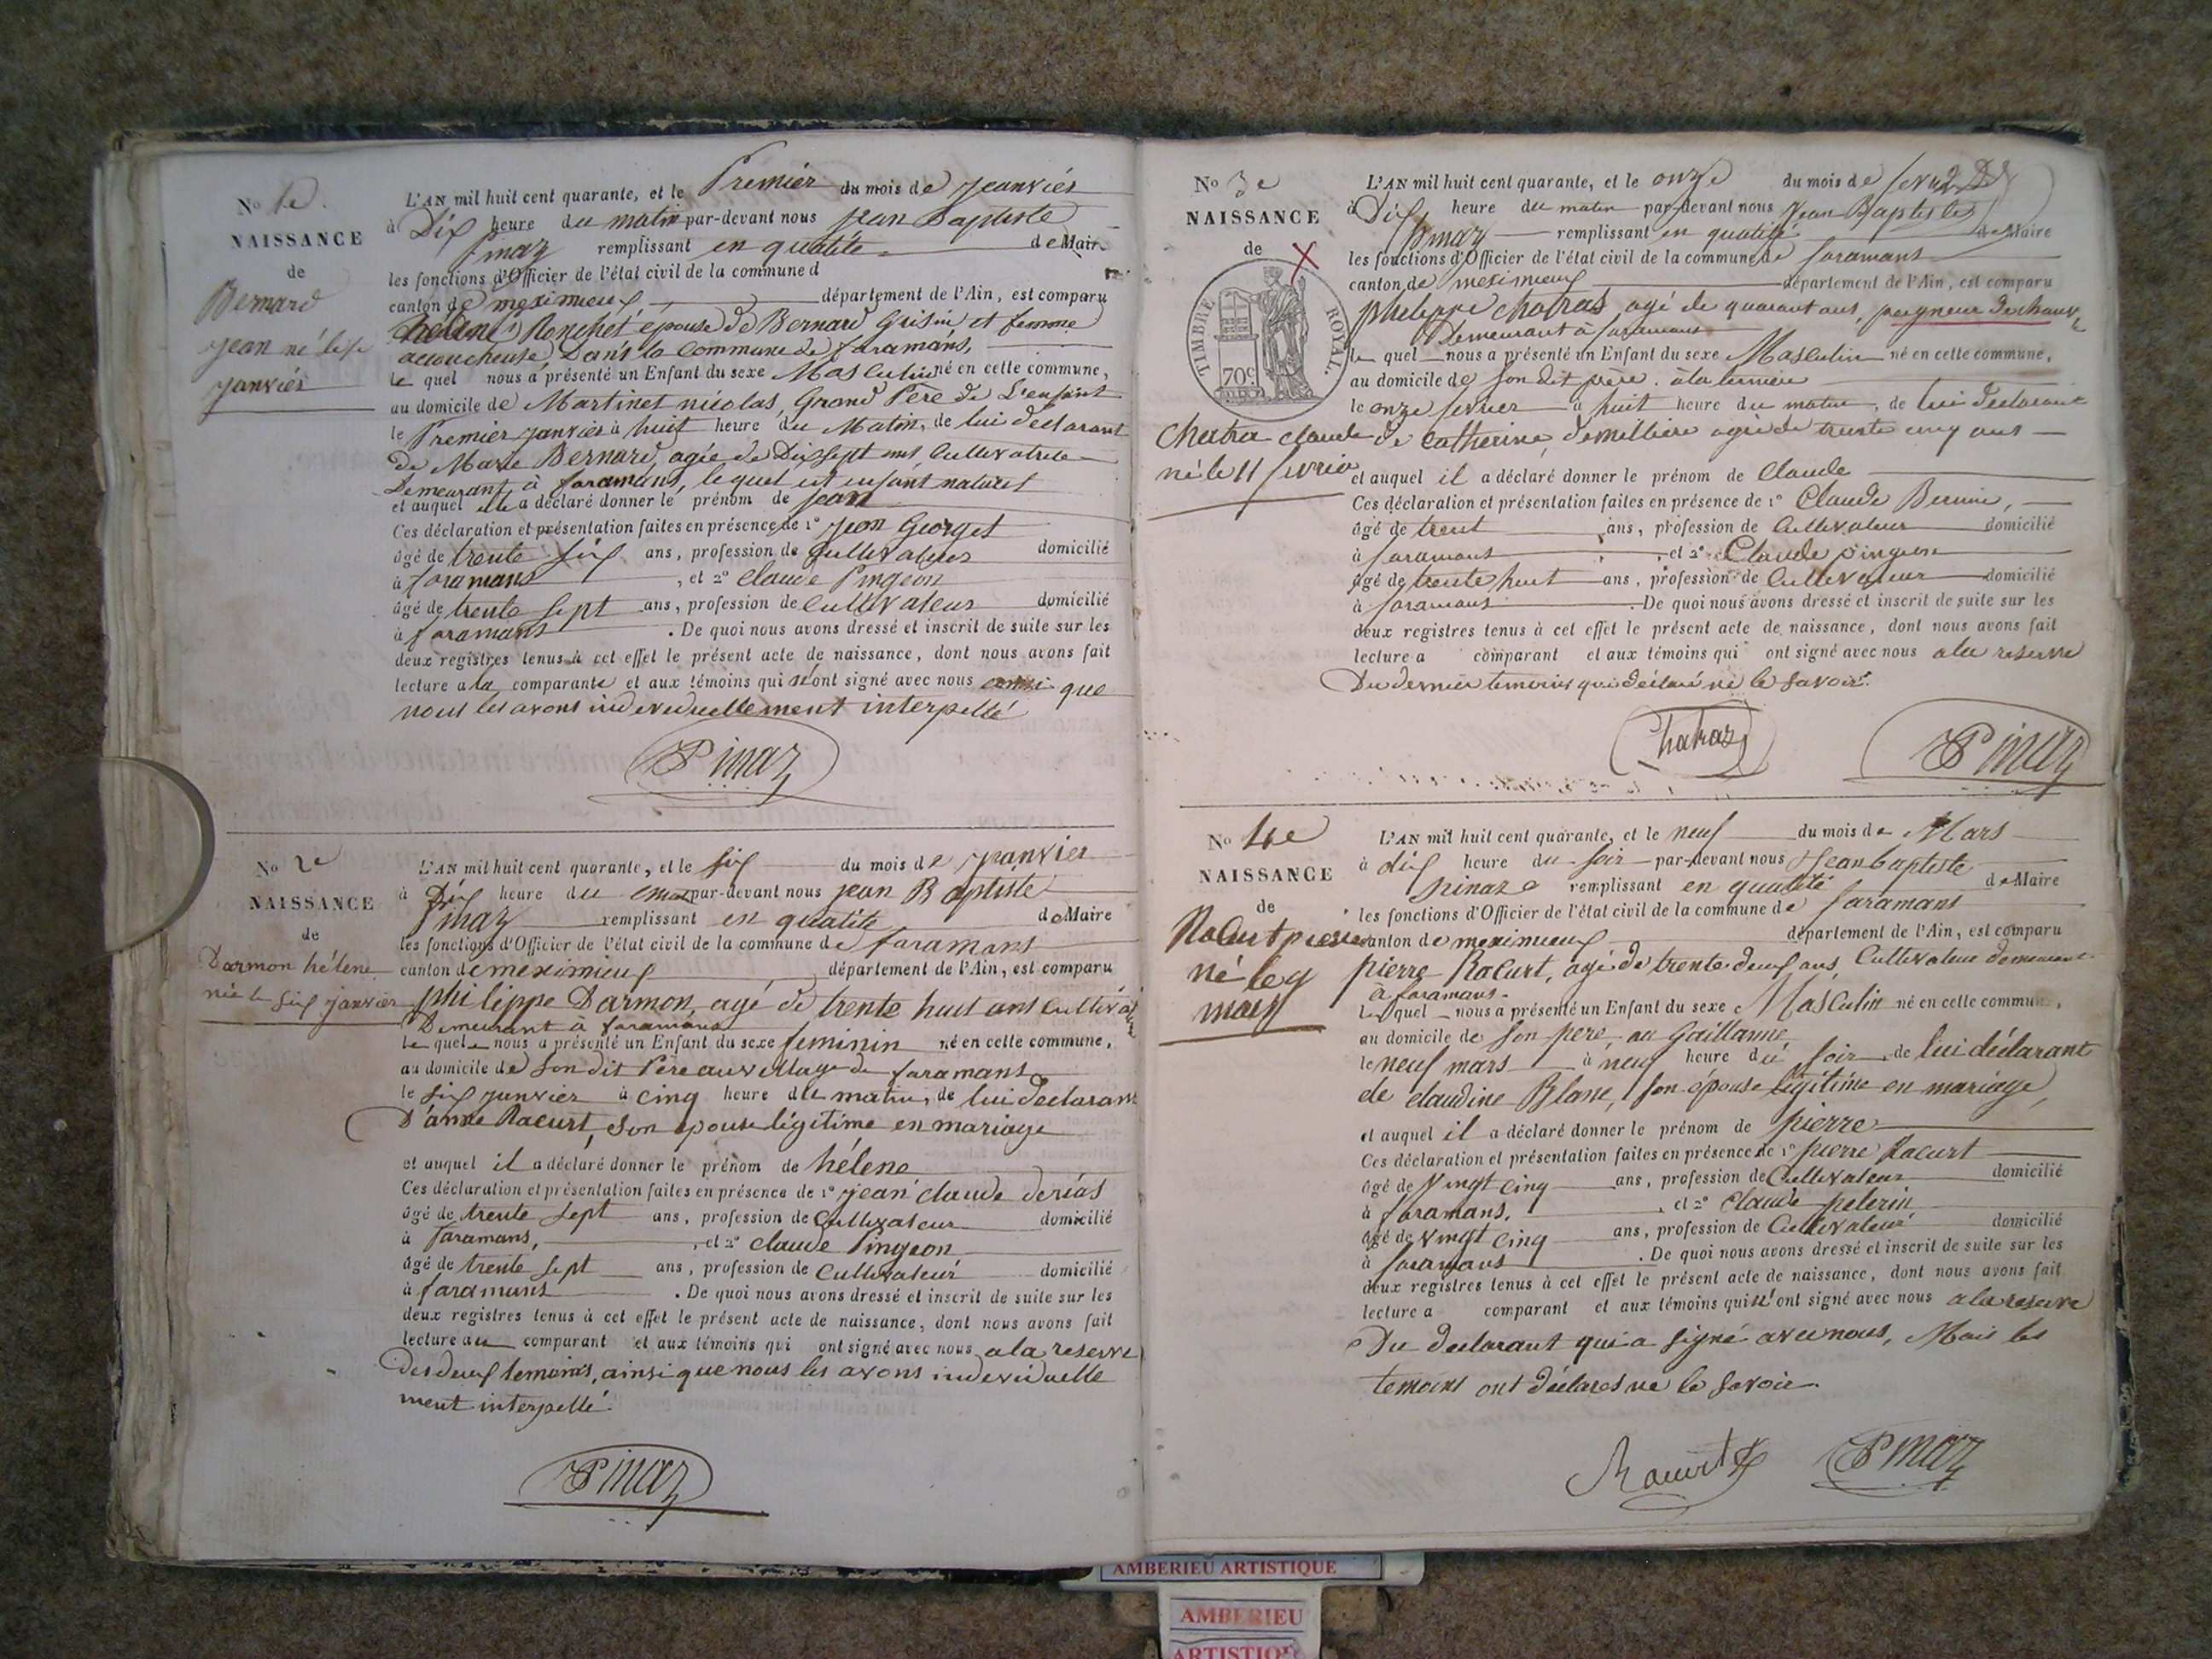 No 1e
NAISSANCE
de
Bernard
jean né le
janvier
L'AN mil huit cent quarante, et le Premier du mois de Janvier
à Dix heure du matin par-devant nous jean Baptiste
Pinaz remplissant en qualité de Maire
les fonctions d'Officier de l'état civil de la commune d
canton de meximieux département de l'Ain, est comparu
Ronchet épouse de Bernard Grisin et femme
accoucheuse Dans la commune de faramans,
le quel nous a présenté un Enfant du sexe Masculin né en cette commune,
au domicile de Martinet nicolas, Grand Père de L'enfant
le Premier janvier à huit heure du Matin, de lui déclarant
de Marie Bernard, agée de Dix sept ans Cultivatrice
Demeurant à faramans, lequel est enfant naturel
et auquel elle a déclaré donner le prénom de jean
Ces déclaration et présentation faites en présence de 1º jean Georget
âgé de trente six ans, profession de Cultivateur domicilié
à faramans, et 2º Claude Pingeon
âgé de trente sept ans, profession de Cultivateur domicilié
à faramans. De quoi nous avons dressé et inscrit de suite sur les
deux registres tenus à cet effet le présent acte de naissance, dont nous avons fait
lecture a la comparante et aux témoins qui n'ont signé avec nous que
nous les avons individuellement interpellé
Pinaz
No 2e
NAISSANCE
de
Darmon hélene
née le six janvier
L'AN mil huit cent quarante, et le six du mois de janvier
à Dix heure du par-devant nous jean Baptiste
Pinaz remplissant en qualité de Maire
les fonctions d'Officier de l'état civil de la commune de faramans
canton de meximieux département de l'Ain, est comparu
philippe Darmon, agé de trente huit ans Cultivat
Demeurant à faramans
le quel nous a présenté un Enfant du sexe feminin né en cette commune,
au domicile de Son dit Père au village de faramans
le six janvier à cinq heure du matin, de lui declarant
D'anne Racurt, Son epouse légitime en mariage
et auquel il a déclaré donner le prénom de hélene
Ces déclaration et présentation faites en présence de 1º jean claude derias
âgé de trente sept ans, profession de Cultivateur domicilié
à faramans, et 2º claude Pingeon
âgé de trente sept ans, profession de Cultivateur domicilié
à faramans. De quoi nous avons dressé et inscrit de suite sur les
deux registres tenus à cet effet le présent acte de naissance, dont nous avons fait
lecture au comparant et aux témoins qui ont signé avec nous a la reserve
Des deux temoins, ainsi que nous les avons individuelle
ment interpellé.
Pinaz
No 3e
NAISSANCE
de
TIMBRE ROYAL.
70c
chatra claude
né le 11 fevrier
L'AN mil huit cent quarante, et le onze du mois de
à Dix heure du matin par-devant nous Jean Baptiste
Pinaz remplissant en qualité de Maire
les fonctions d'Officier de l'état civil de la commune de faramans
canton de meximieux département de l'Ain, est comparu
philippe chatras, agé de quarant ans, peigneur de chanv
Demeurant à faramans
le quel nous a présenté un Enfant du sexe Masculin né en cette commune,
au domicile de son dit père. à la
le onze fevrier à huit heure du matin, de lui declarant
de Catherine, demillière agée de trente cinq ans
et auquel il a déclaré donner le prénom de Claude
Ces déclaration et présentation faites en présence de 1º Claude
âgé de trent ans, profession de Cultivateur domicilié
à faramans, et 2º Claude Pingeon
âgé de trente huit ans, profession de Cultivateur domicilié
à faramans. De quoi nous avons dressé et inscrit de suite sur les
deux registres tenus à cet effet le présent acte de naissance, dont nous avons fait
lecture a comparant et aux témoins qui ont signé avec nous a la reserve
Du dernier temoins qui déclaré ne le Savoir.
Chatraz
Pinaz
No 4e
NAISSANCE
de
Racurt pierre
né le 9
mars
L'AN mil huit cent quarante, et le neuf du mois de Mars
à dix heure du soir par-devant nous Jean baptiste
pinaz remplissant en qualité de Maire
les fonctions d'Officier de l'état civil de la commune de faramans
canton de meximieux département de l'Ain, est comparu
pierre Racurt, agé de trente deux ans, Cultivateur demeurant
à faramans.
le quel nous a présenté un Enfant du sexe Masculin né en cette commune,
au domicile de Son pere, au Gaillanne
le neuf mars à neuf heure du soir de lui déclarant
de claudine Blanc, son épouse légitime en mariage,
et auquel il a déclaré donner le prénom de pierre
Ces déclaration et présentation faites en présence de 1º pierre Racurt
âgé de Vingt cinq ans, profession de Cultivateur domicilié
à faramans, et 2º claude pelerin
âgé de vingt cinq ans, profession de Cultivateur domicilié
à faramans. De quoi nous avons dressé et inscrit de suite sur les
deux registres tenus à cet effet le présent acte de naissance, dont nous avons fait
lecture a comparant et aux témoins qui n'ont signé avec nous a la reserve
Du declarant qui a signé avec nous, Mais les
temoins ont déclarés ne le Savoir
Racurt
Pinaz
AMBERIEU ARTISTIQUE
AMBERIEU
ARTISTIQUE